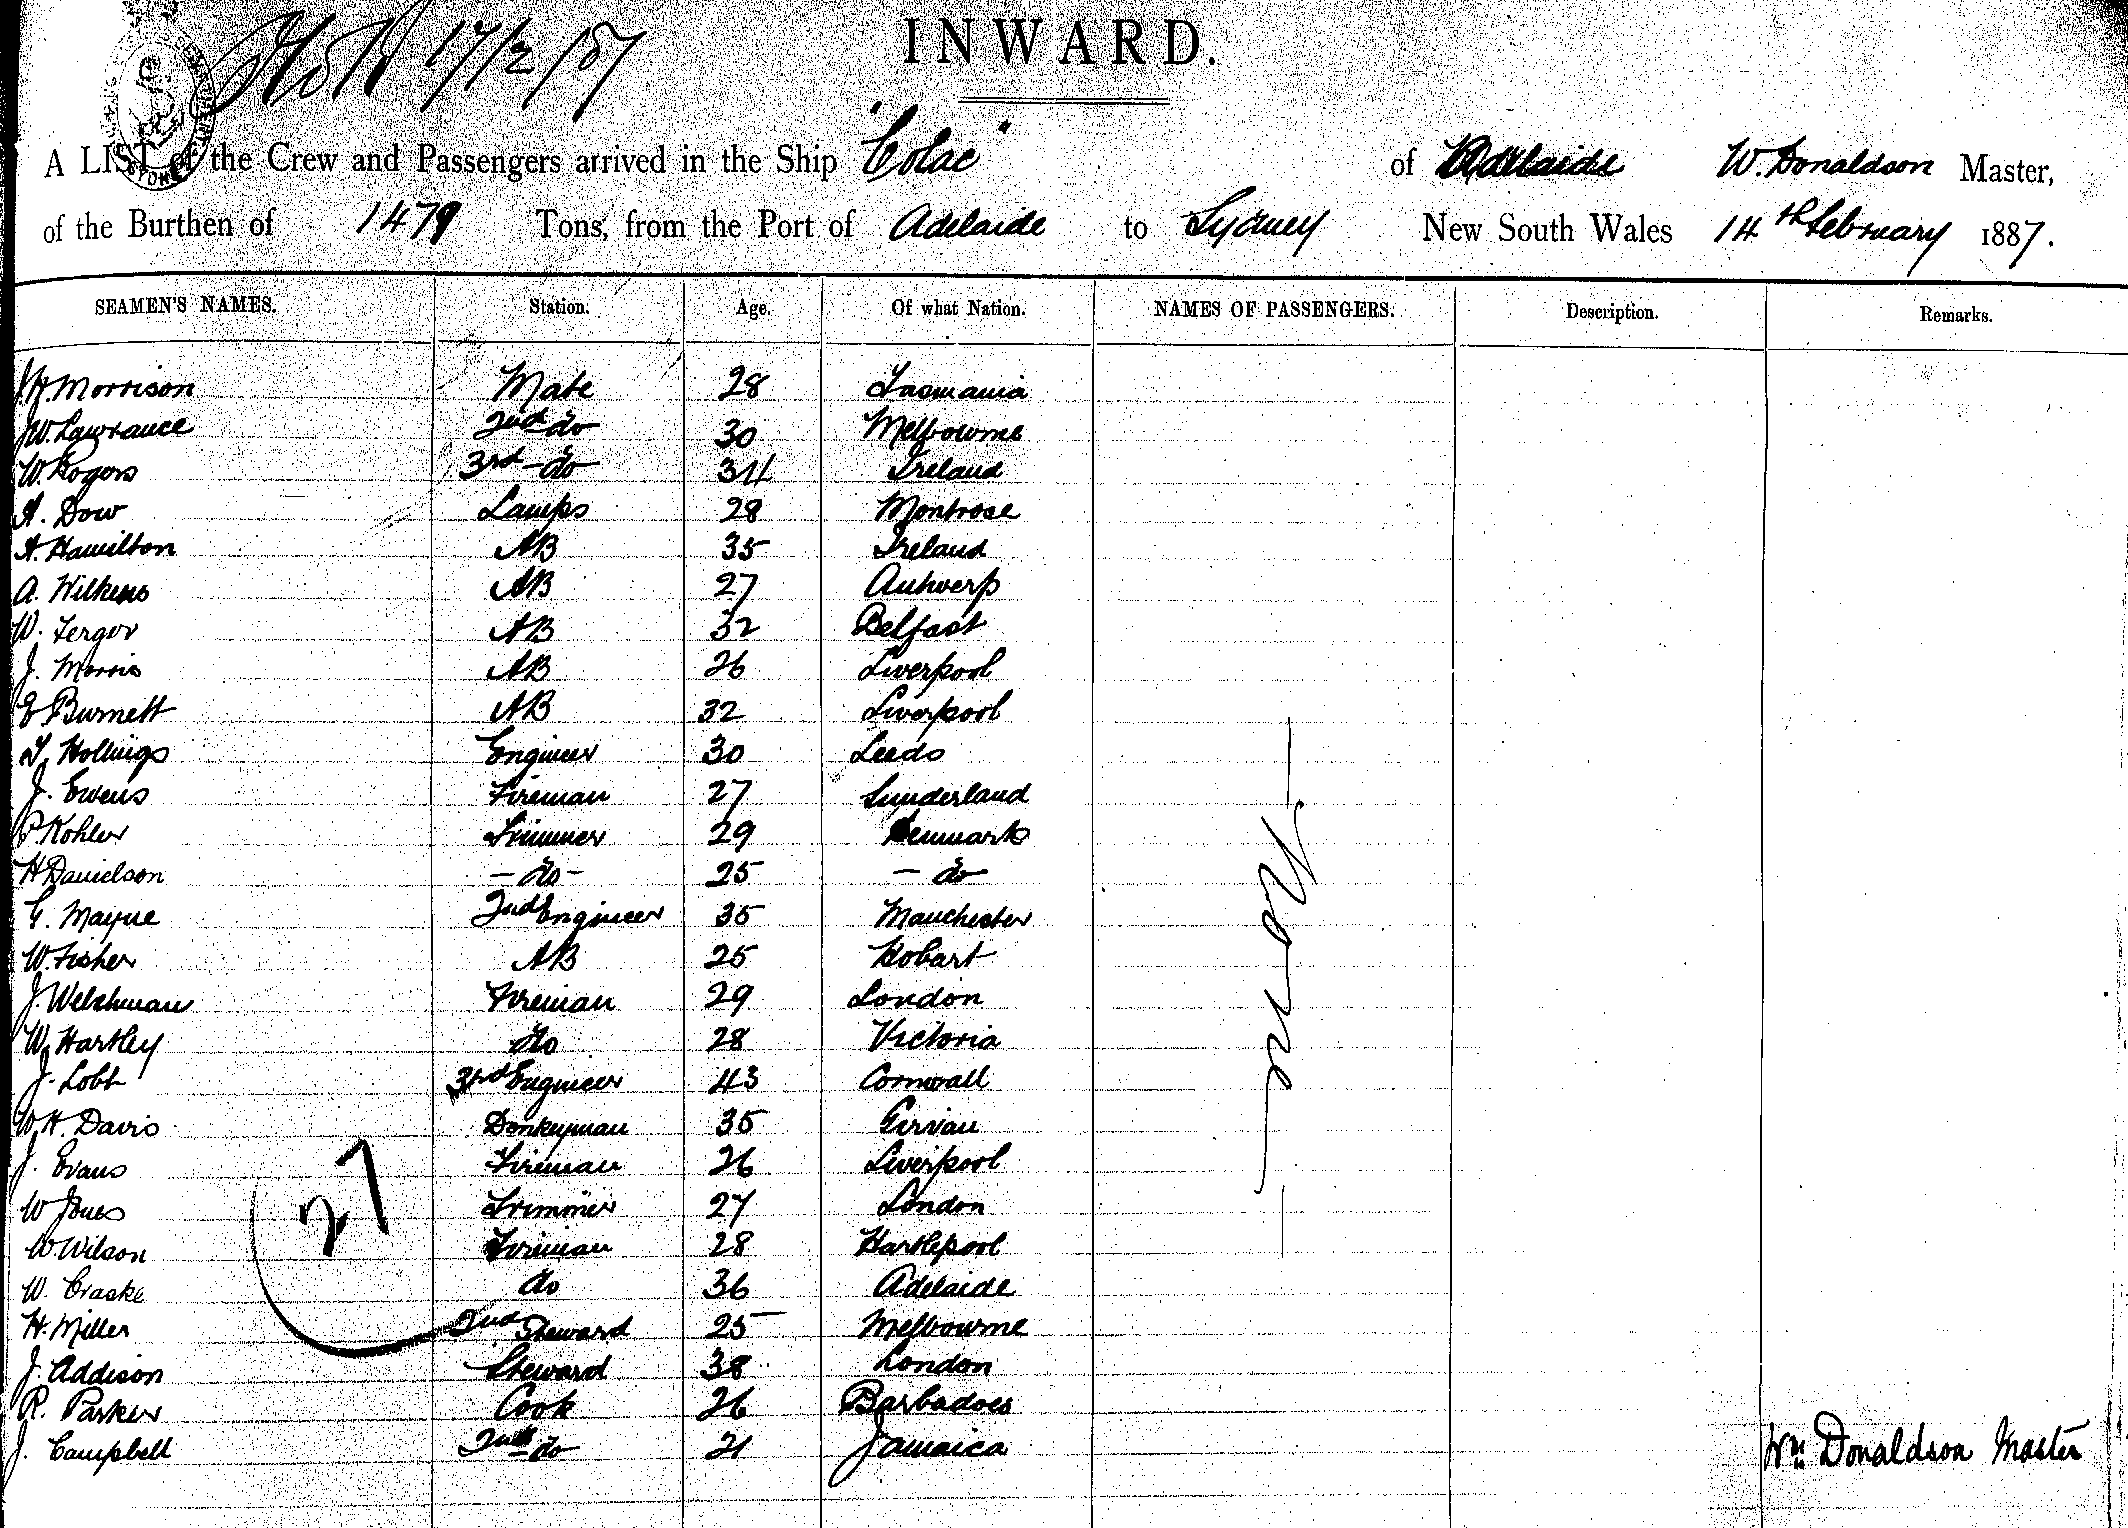 17/2/87
INWARD.
A LIST of the Crew and Passengers arrived in the Ship "Colac" of Adelaide W. Donaldson Master,
of the Burthen of 1479 Tons, from the Port of Adelaide to Sydney New South Wales 14th February 1887.
SEAMEN'S NAMES. Station. Age. Of what Nation. NAMES OF PASSENGERS. Description. Remarks.
J.H. Morrison Mate 28 Tasmania
J.W. Lawrance 2nd do 30 Melbourne
W. Rogers 3rd do 34 Ireland
A. Dow Lamps 28 Montrose
A. Hamilton AB 35 Ireland
A. Wilkens AB 27 Antwerp
W. Fergor AB 32 Belfast
J. Morris AB 26 Liverpool
E Burnett AB 32 Liverpool
T. Hollings Engineer 30 Leeds
J. Ewens Fireman 27 Sunderland
P. Kohler Trimmer 29 Denmark
H Danielson - do - 25 - do
G. Mayne 2nd Engineer 35 Manchester
W. Fisher AB 25 Hobart
J. Welchman Fireman 29 London
W. Hartley do 28 Victoria
J. Lobb 3rd Engineer 43 Cornwall
W.H. Davis Donkeyman 35 Girvan
J. Evans Fireman 26 Liverpool
W Jones Trimmer 27 London
W. Wilson Fireman 28 Hartlepool
W. Craske do 36 Adelaide
H. Miller 2nd Steward 25 Melbourne
J. Addison Steward 38 London
R. Parker Cook 26 Barbadoes
J. Campbell 2nd do 21 Jamaica
None
27
Wm Donaldson Master